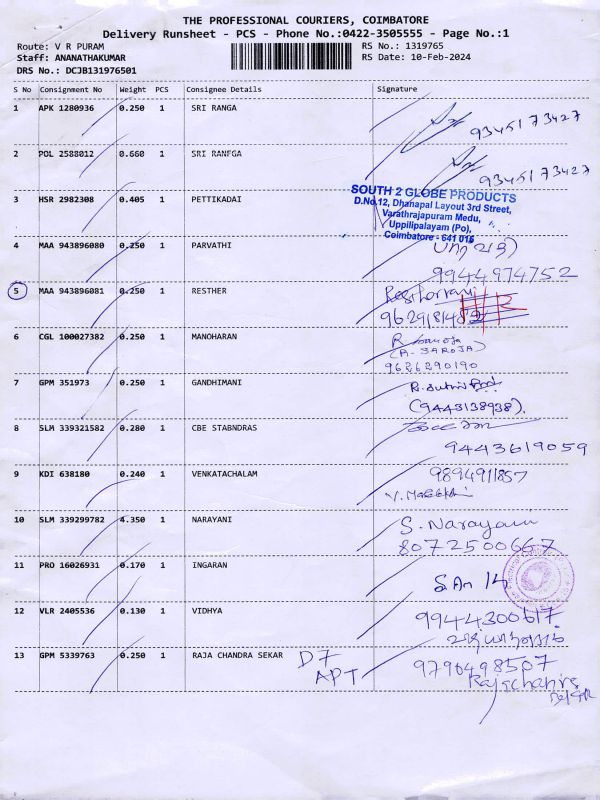 THE PROFESSIONAL COURIERS, COIMBATORE
Delivery Runsheet - PCS - Phone No.:0422-3505555 - Page No.:1
Route: V R PURAM
RS No.: 1319765
Staff: ANANATHAKUMAR
RS Date: 10-Feb-2024
DRS No.: DCJB131976501
S No Consignment No Weight PCS Consignee Details Signature
1 APK 1280936 0.250 1 SRI RANGA
93451 73427
2 POL 2588012 0.660 1 SRI RANFGA
93451 73427
3 HSR 2982308 0.405 1 PETTIKADAI
SOUTH 2 GLOBE PRODUCTS
D.No.12, Dhanapal Layout 3rd Street,
Varathrajapuram Medu,
Uppilipalayam (Po),
Coimbatore - 641 015
4 MAA 943896080 0.250 1 PARVATHI
9944974752
5 MAA 943896081 0.250 1 RESTHER
6 CGL 100027382 0.250 1 MANOHARAN
(R. SAROJA)
9626290190
7 GPM 351973 0.250 1 GANDHIMANI
(9443138938).
8 SLM 339321582 0.280 1 CBE STABNDRAS
9443619059
9 KDI 638180 0.240 1 VENKATACHALAM
9894911857
10 SLM 339299782 4.350 1 NARAYANI
S. Narayani
8072500667
11 PRO 16026931 0.170 1 INGARAN
12 VLR 2405536 0.130 1 VIDHYA
9944300617.
13 GPM 5339763 0.250 1 RAJA CHANDRA SEKAR D7
APT
9796498507